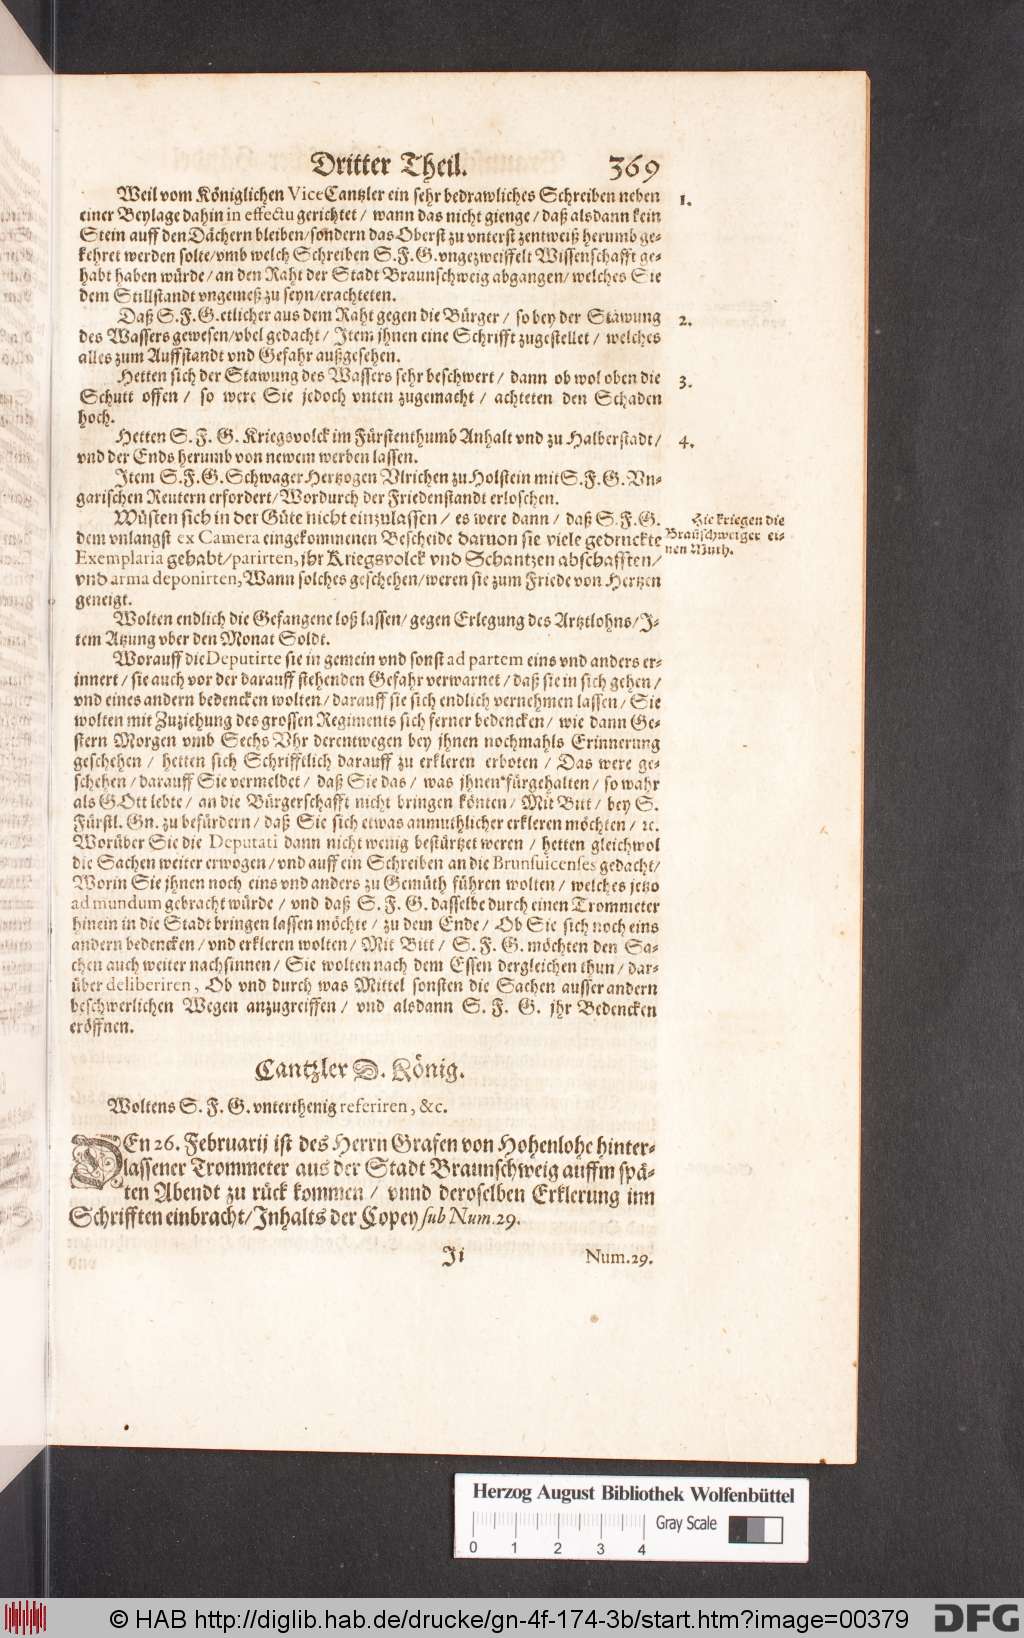 Dritter Theil. 369
Weil vom Königlichen ViceCantzler ein sehr bedrawliches Schreiben neben 1.
einer Beylage dahin in effectu gerichtet / wann das nicht gienge / daß alsdann kein
Stein auff den Dächern bleiben/sondern das Oberst zu vnterst zentweiß herumb ge-
kehret werden solte/vmb welch Schreiben S.F.G.vngezweiffelt Wissenschafft ge-
habt haben würde/an den Raht der Stadt Braunschweig abgangen/welches Sie
dem Stillstandt vngemeß zu seyn/erachteten.
Daß S.F.G.etlicher aus dem Raht gegen die Bürger / so bey der Stäwung 2.
des Wassers gewesen/vbel gedacht / Item jhnen eine Schrifft zugestellet / welches
alles zum Auffstandt vnd Gefahr außgesehen.
Hetten sich der Stawung des Wassers sehr beschwert / dann ob wol oben die 3.
Schutt offen / so were Sie jedoch vnten zugemacht / achteten den Schaden
hoch.
Hetten S. F. G. Kriegsvolck im Fürstenthumb Anhalt vnd zu Halberstadt/ 4.
vnd der Ends herumb von newem werben lassen.
Item S.F.G.Schwager Hertzogen Vlrichen zu Holstein mit S.F.G.Vn-
garischen Reutern erfordert/Wordurch der Friedenstandt erloschen.
Müsten sich in der Güte nicht einzulassen / es were dann / daß S.F.G.
dem vnlangst ex Camera eingekommenen Bescheide daruon sie viele gedruckte
Exemplaria gehabt/parirten, jhr Kriegsvolck vnd Schantzen abschafften/
vnd arma deponirten, Wann solches geschehen/weren sie zum Friede von Hertzen
geneigt.
Hie kriegen die
Braunschweiger ei-
nen Muth.
Wolten endlich die Gefangene loß lassen/gegen Erlegung des Artztlohns/I-
tem Atzung vber den Monat Soldt.
Worauff die Deputirte sie in gemein vnd sonst ad partem eins vnd anders er-
innert / sie auch vor der darauff stehenden Gefahr verwarnet / daß sie in sich gehen/
vnd eines andern bedencken wolten / darauff sie sich endlich vernehmen lassen / Sie
wolten mit Zuziehung des grossen Regiments sich ferner bedencken / wie dann Ge-
stern Morgen vmb Sechs Vhr derentwegen bey jhnen nochmahls Erinnerung
geschehen / hetten sich Schrifftlich darauff zu erkleren erboten / Das were ge-
schehen / darauff Sie vermeldet / daß Sie das / was jhnen fürgehalten / so wahr
als GOtt lebte / an die Bürgerschafft nicht bringen könten / Mit Bitt / bey S.
Fürstl. Gn. zu befürdern / daß Sie sich etwas anmuthlicher erkleren möchten / ꝛc.
Worüber Sie die Deputati dann nicht wenig bestürtzet weren / hetten gleichwol
die Sachen weiter erwogen / vnd auff ein Schreiben an die Brunsuicenses gedacht/
Worin Sie jhnen noch eins vnd anders zu Gemüth führen wolten / welches jetzo
ad mundum gebracht würde / vnd daß S. F. G. dasselbe durch einen Trommeter
hinein in die Stadt bringen lassen möchte / zu dem Ende / Ob Sie sich noch eins
andern bedencken / vnd erkleren wolten / Mit Bitt / S. F. G. möchten den Sa-
chen auch weiter nachsinnen / Sie wolten nach dem Essen dergleichen thun / dar-
über deliberiren, Ob vnd durch was Mittel sonsten die Sachen ausser andern
beschwerlichen Wegen anzugreiffen / vnd alsdann S. F. G. jhr Bedencken
eröffnen.
Cantzler D. König.
Woltens S. F. G. vnterthenig referiren, &c.
DEn 26. Februarij ist des Herrn Grafen von Hohenlohe hinter-
lassener Trommeter aus der Stadt Braunschweig auffm spä-
ten Abendt zu rück kommen / vnnd deroselben Erklerung inn
Schrifften einbracht/Inhalts der Copey sub Num. 29.
Ii Num. 29.
Herzog August Bibliothek Wolfenbüttel
Gray Scale
0 1 2 3 4
© HAB http://diglib.hab.de/drucke/gn-4f-174-3b/start.htm?image=00379 DFG